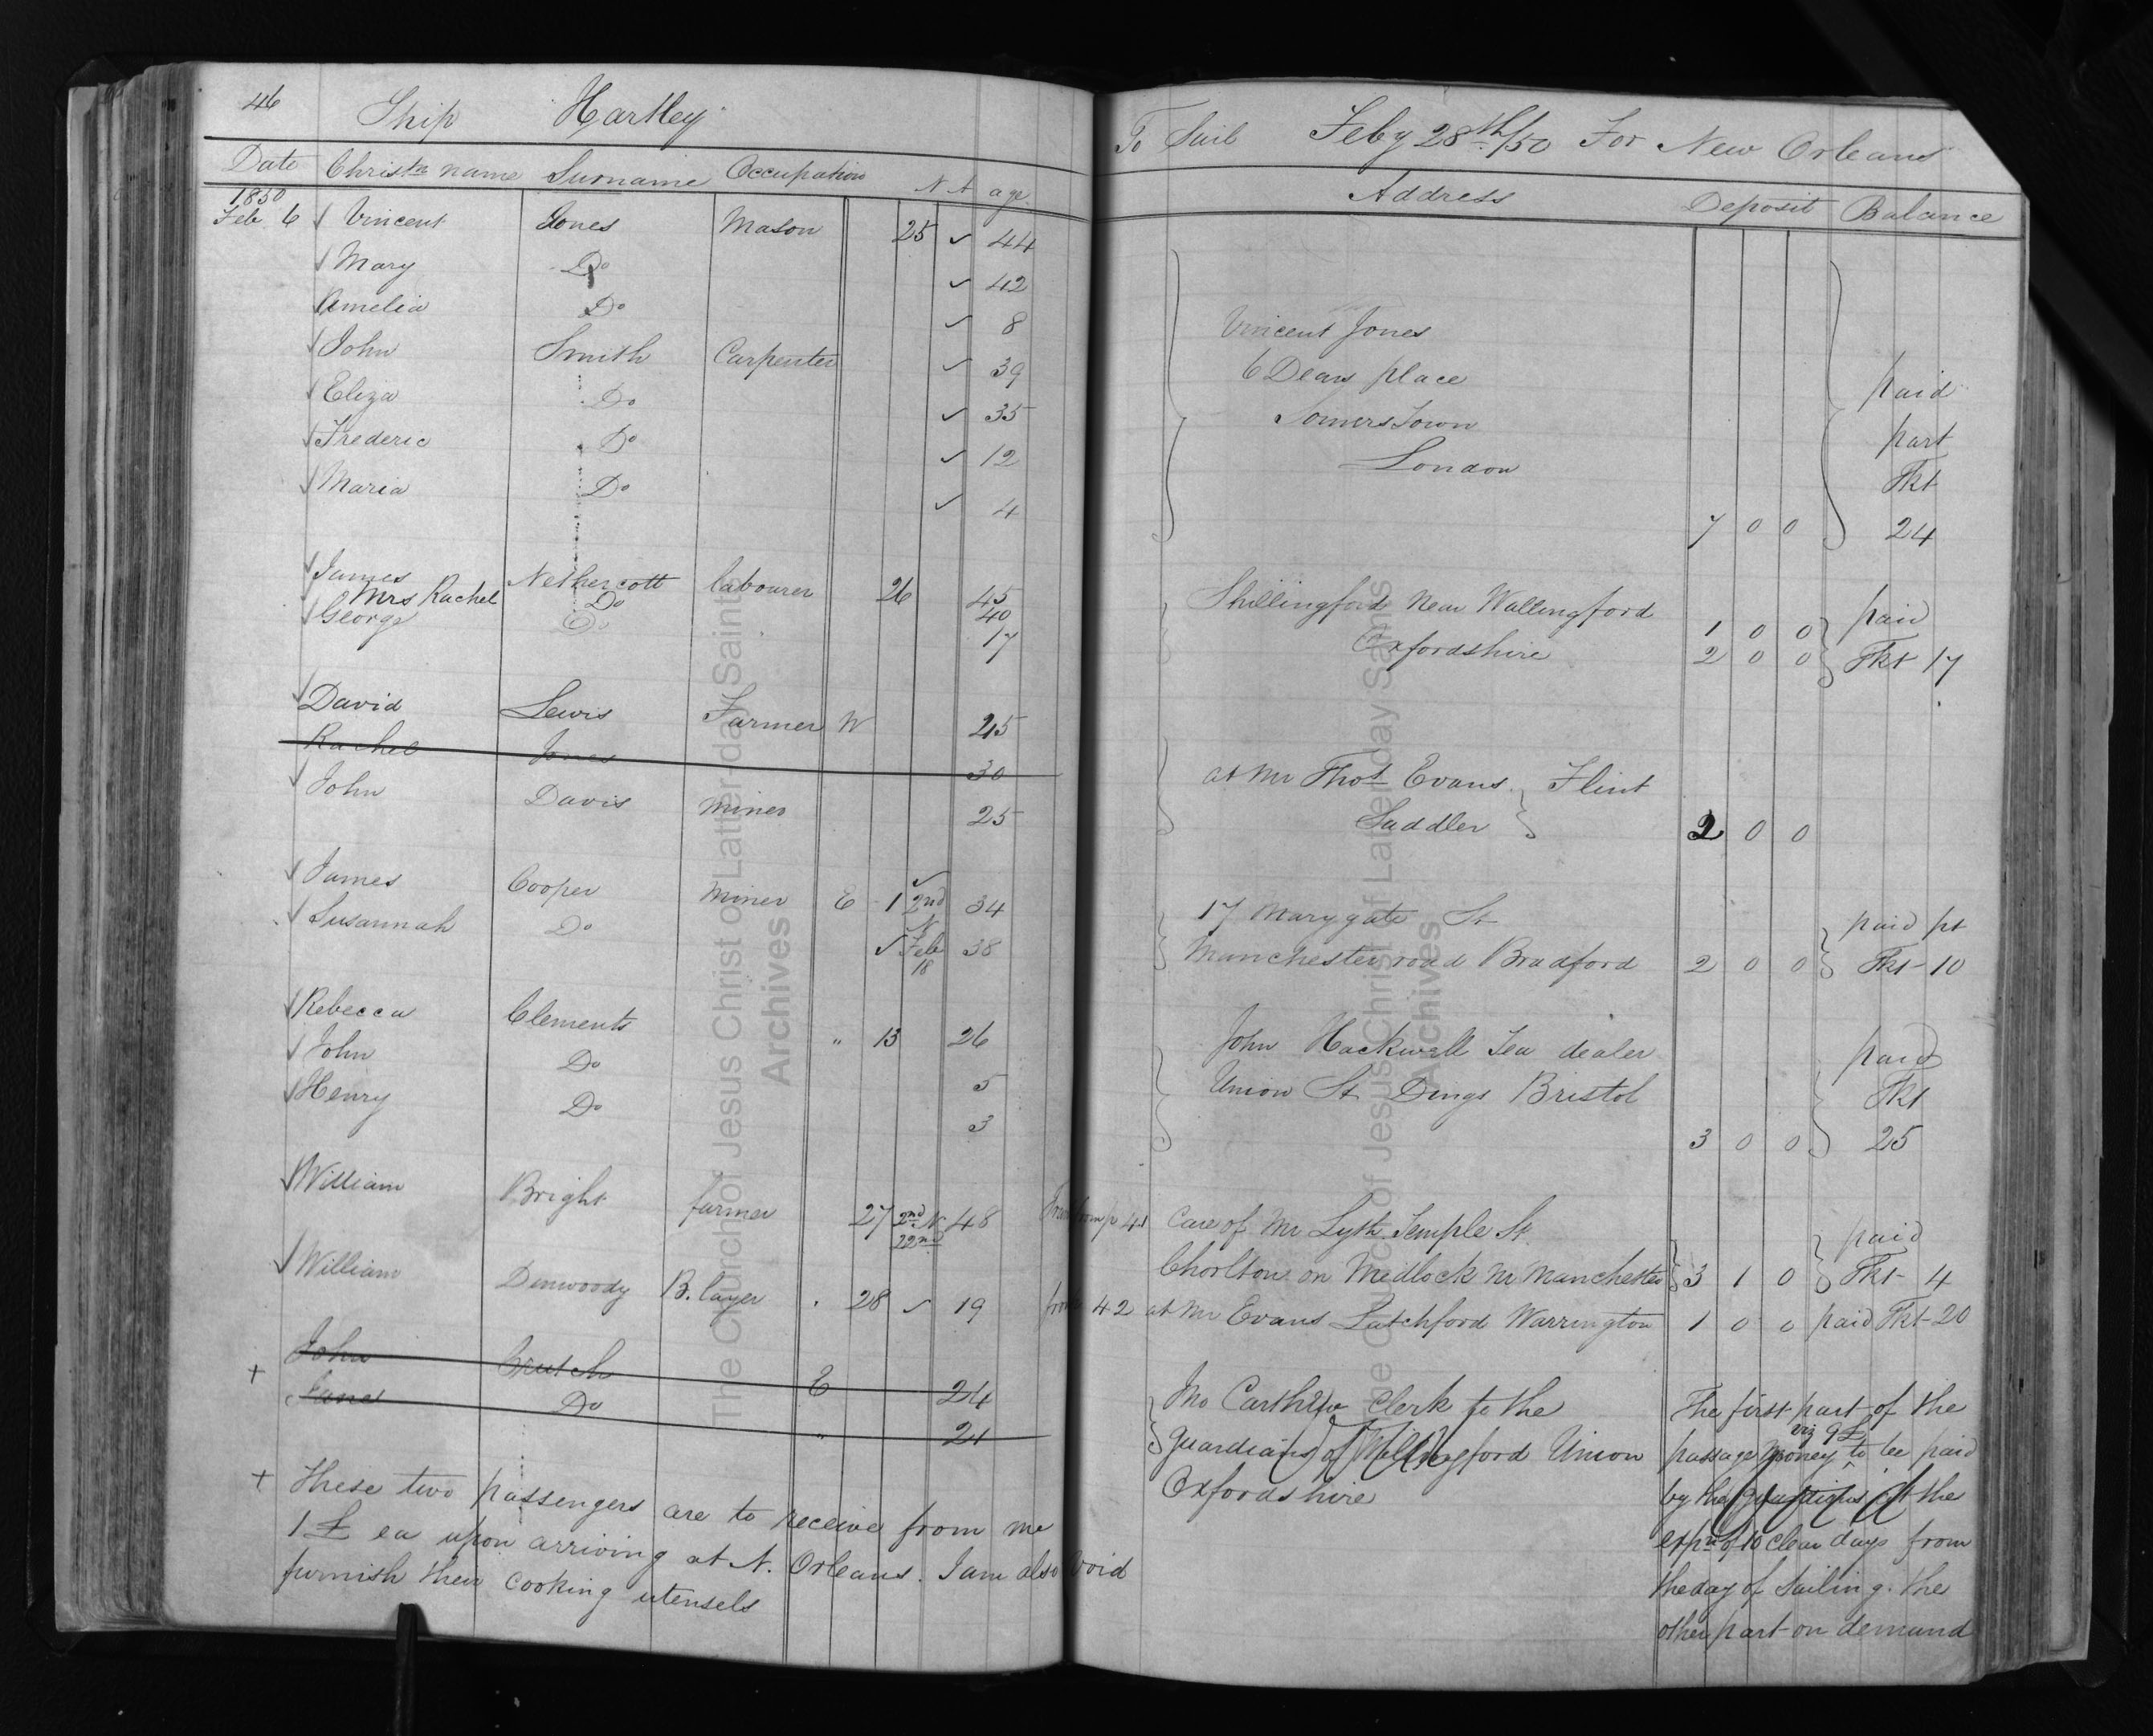 46 Ship Hartley
Date Christn name Surname Occupation N A age
1850
Feb 6 Vincent Jones Mason 25 ✓ 44
Mary Do ✓ 42
Amelia Do ✓ 8
John Smith Carpenter ✓ 39
Eliza Do ✓ 35
Frederic Do ✓ 12
Maria Do ✓ 4
James Nethercott labourer 26 45
Mrs Rachel Do 40
George Do 17
David Lewis Farmer W 25
Rachel Jones 30
John Davis miner 25
James Cooper miner E 1 2nd 34
N
Susannah Do ✓ Feb 38
18
Rebecca Clements " 13 26
John Do 5
Henry Do 3
William Bright farmer 27 2nd N 48
22nd
William Dinwoody B. layer 28 ✓ 19
John Crutch E 24
+ Jane Do " 21
+ these two passengers are to receive from me
1£ ea upon arriving at N. Orleans. I am also void
furnish their cooking utensels
To Sail Feby 28th/50 For New Orleans
Address Deposit Balance
Vincent Jones
6 Deans place paid
Somers Town part
London Tkt
7 0 0 24
Shillingford Near Wallingford 1 0 0 paid
Oxfordshire 2 0 0 Tkt 17
at Mr Thos Evans Flint
Saddler 2 0 0
17 Marygate St paid pt
Manchester road Bradford 2 0 0 Tkt 10
John Hackwell Tea dealer paid
Union St Dings Bristol Tkt
3 0 0 25
from p 41 Care of Mr Lyth Temple St paid
Chorlton on Medlock Nr Manchester 3 1 0 Tkt 4
from 42 at Mr Evans Latchford Warrington 1 0 0 paid Tkt 20
Jno Carthew Clerk to the The first part of the
viz 9£
guardians of Wallingford Union passage money to be paid
Oxfordshire by the Guardians at the
expn of 10 clear days from
the day of Sailing. the
other part on demand
The Church of Jesus Christ of Latter-day Saints
Archives
The Church of Jesus Christ of Latter-day Saints
Archives